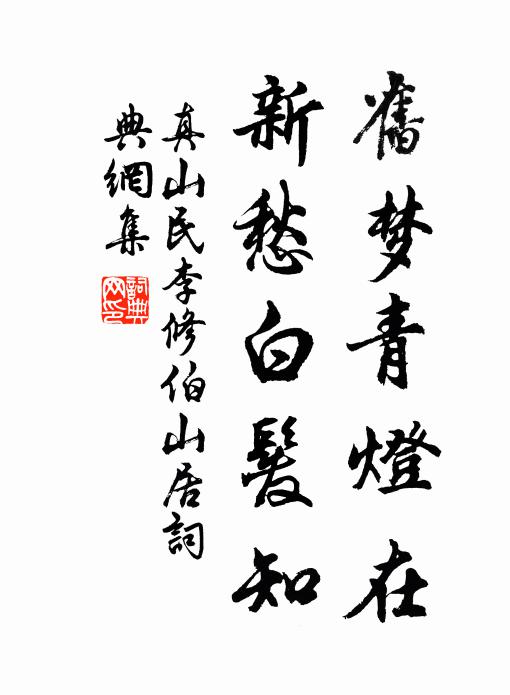 舊梦青燈在
新愁白髮知
真山民李修伯山居詞
典網集
詞典
网印